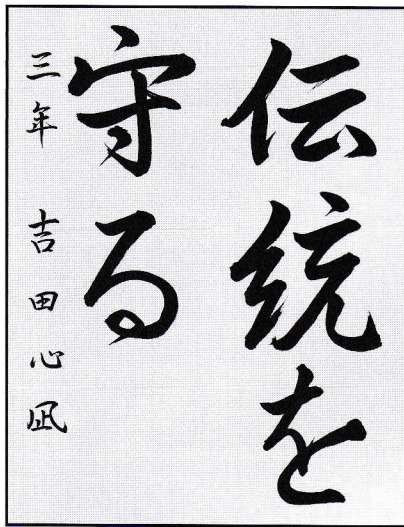 伝統を
守る
三年 吉田心凪